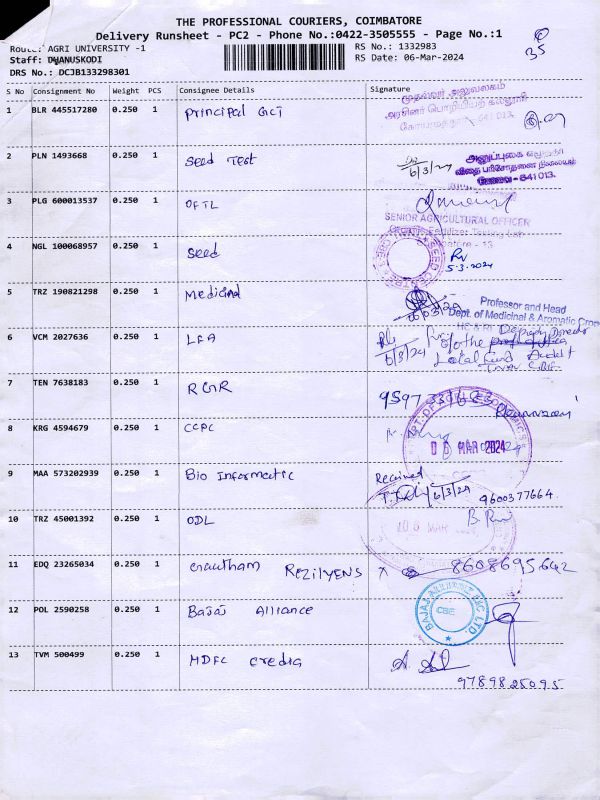 THE PROFESSIONAL COURIERS, COIMBATORE
Delivery Runsheet - PC2 - Phone No.:0422-3505555 - Page No.:1
Route: AGRI UNIVERSITY -1
RS No.: 1332983
35
Staff: DHANUSKODI
RS Date: 06-Mar-2024
DRS No.: DCJB133298301
S No Consignment No Weight PCS Consignee Details Signature
1 BLR 445517280 0.250 1 Principal GCT
முதல்வர் அலுவலகம்
அரசினர் பொறியியற் கல்லூரி
641 013.
2 PLN 1493668 0.250 1 Seed Test
6/3/24
விதை பரிசோதனை நிலையம்
641 013.
3 PLG 600013537 0.250 1 OFTL
SENIOR AGRICULTURAL OFFICER
4 NGL 100068957 0.250 1 Seed
5.3.2024
5 TRZ 190821298 0.250 1 Medicinal
Professor and Head
Dept. of Medicinal & Aromatic Crops
6 VCM 2027636 0.250 1 LFA
6/3/24 Deputy Director
O/o the
Local Fund Audit
7 TEN 7638183 0.250 1 RGR
8 KRG 4594679 0.250 1 CCPC
06 MAR 2024
9 MAA 573202939 0.250 1 Bio Informatic
Received
6/3/24 9600377664.
10 TRZ 45001392 0.250 1 ODL
06 MAR
11 EDQ 23265034 0.250 1 Gautham REZILYENS
8608695642
12 POL 2590258 0.250 1 Bajaj Alliance
BAJAJ ALLIANZ GIC LTD.
CBE
13 TVM 500499 0.250 1 HDFC Credia
9789825095